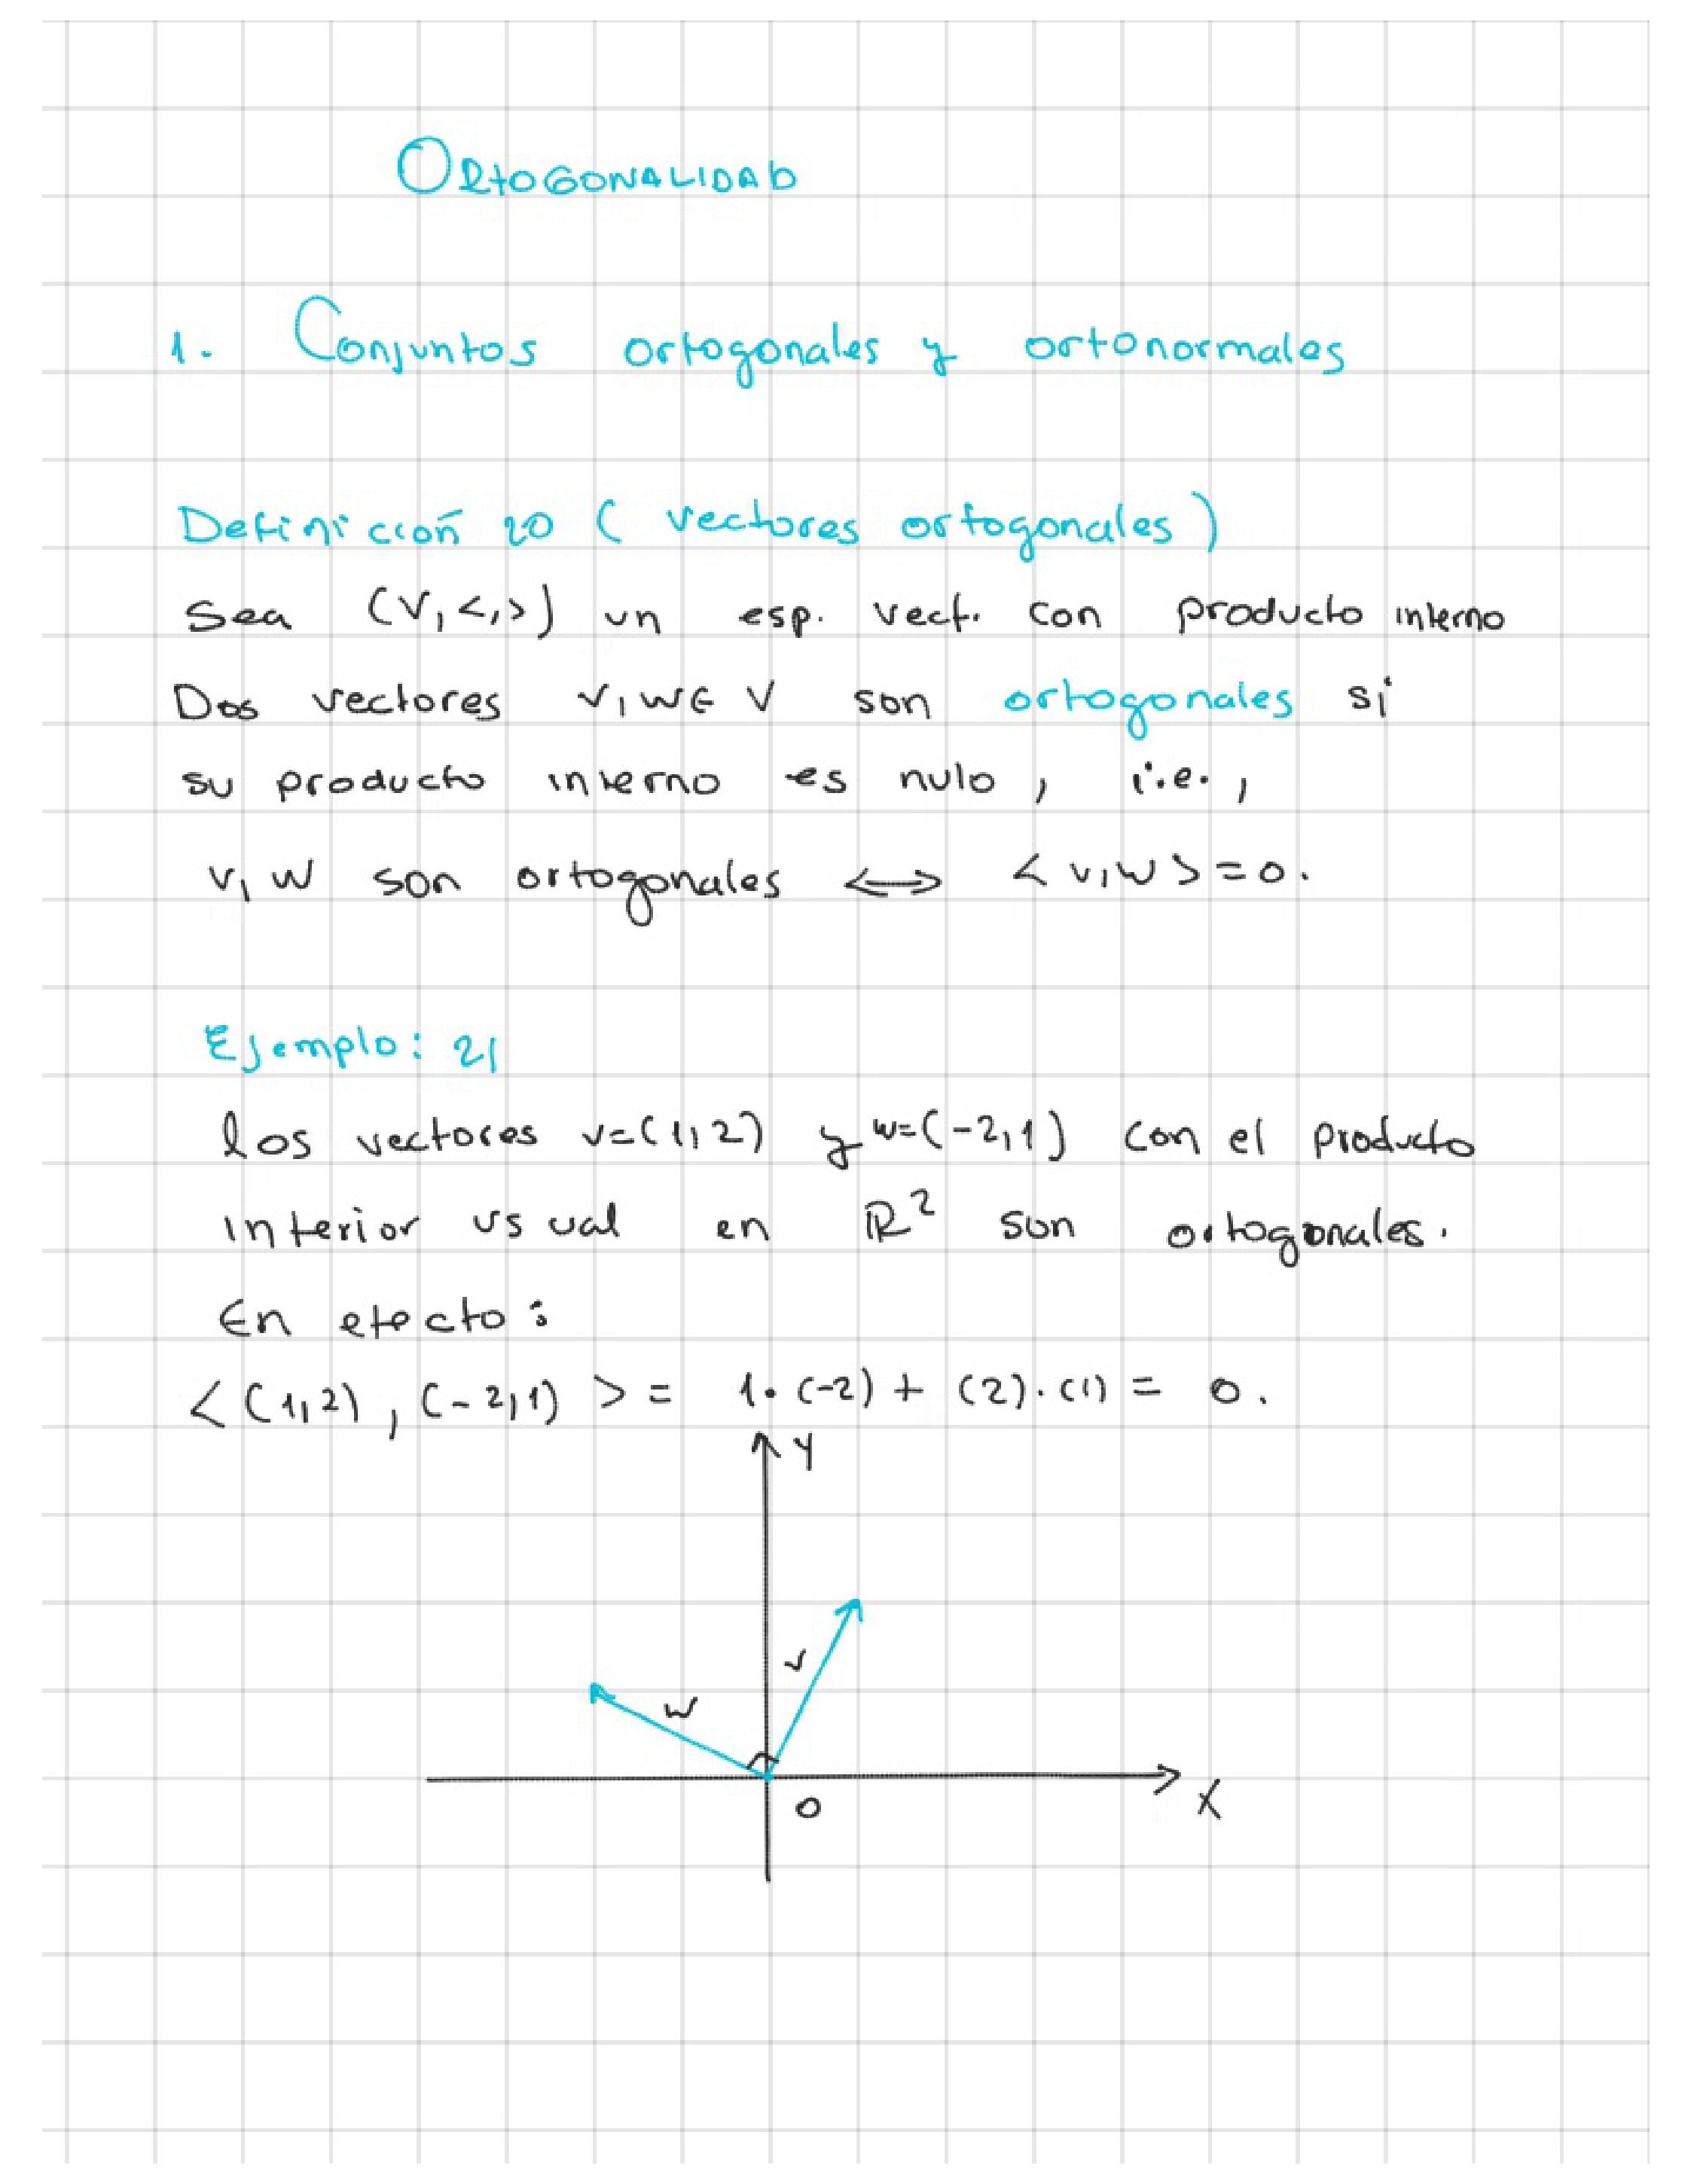 ORTOGONALIDAD
1. Conjuntos ortogonales y ortonormales
Definición 20 ( vectores ortogonales )
Sea (V, <,>) un esp. vect. con producto interno
Dos vectores v, w ∈ V son ortogonales si
su producto interno es nulo, i.e.,
v, w son ortogonales ⟺ < v, w > = 0.
Ejemplo: 21
los vectores v=(1,2) y w=(-2,1) con el producto
interior usual en ℝ² son ortogonales.
En efecto:
< (1,2), (-2,1) > = 1·(-2) + (2)·(1) = 0.
Y
v
w
0
X